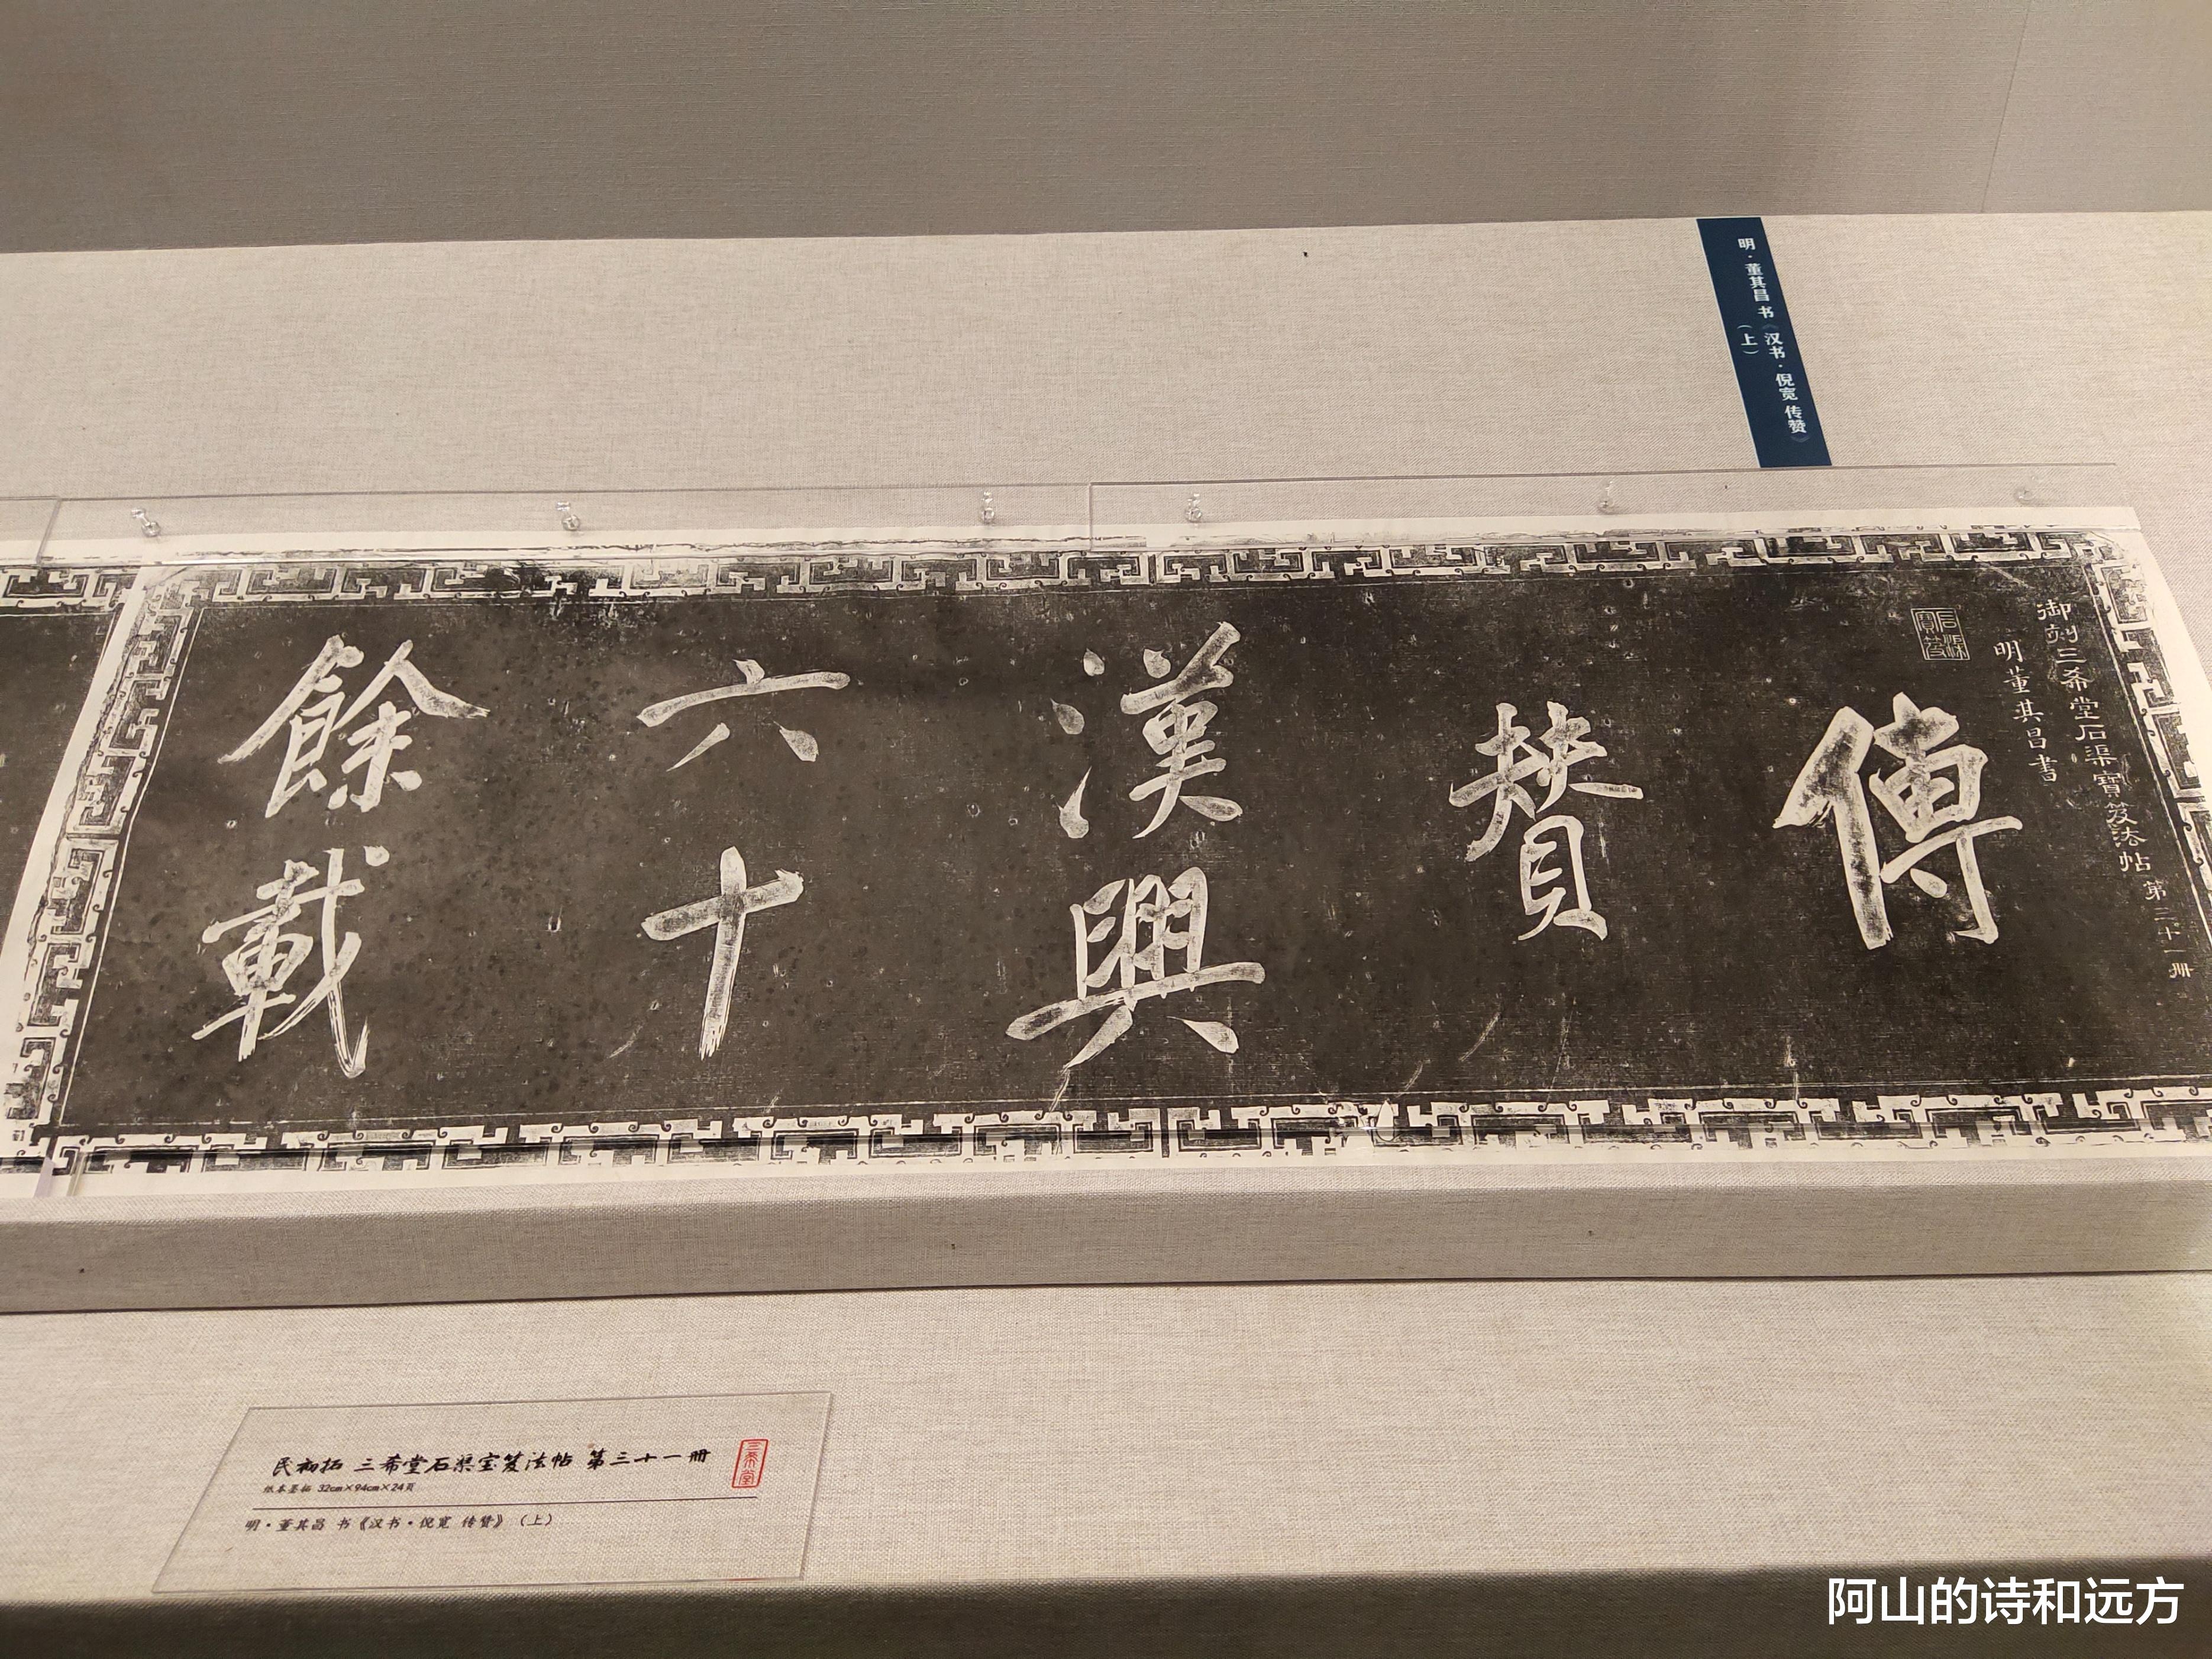 明·董其昌 书《汉书·倪宽 传赞》
（上）
御刻三希堂石渠寶笈法帖 第三十一册
明董其昌書
石渠寶笈
傳
贊
漢興
六十
餘載
民初拓 三希堂石渠宝笈法帖 第三十一册
三希堂
纸本墨拓 32cm×94cm×24頁
明·董其昌 书《汉书·倪宽 传赞》（上）
阿山的诗和远方